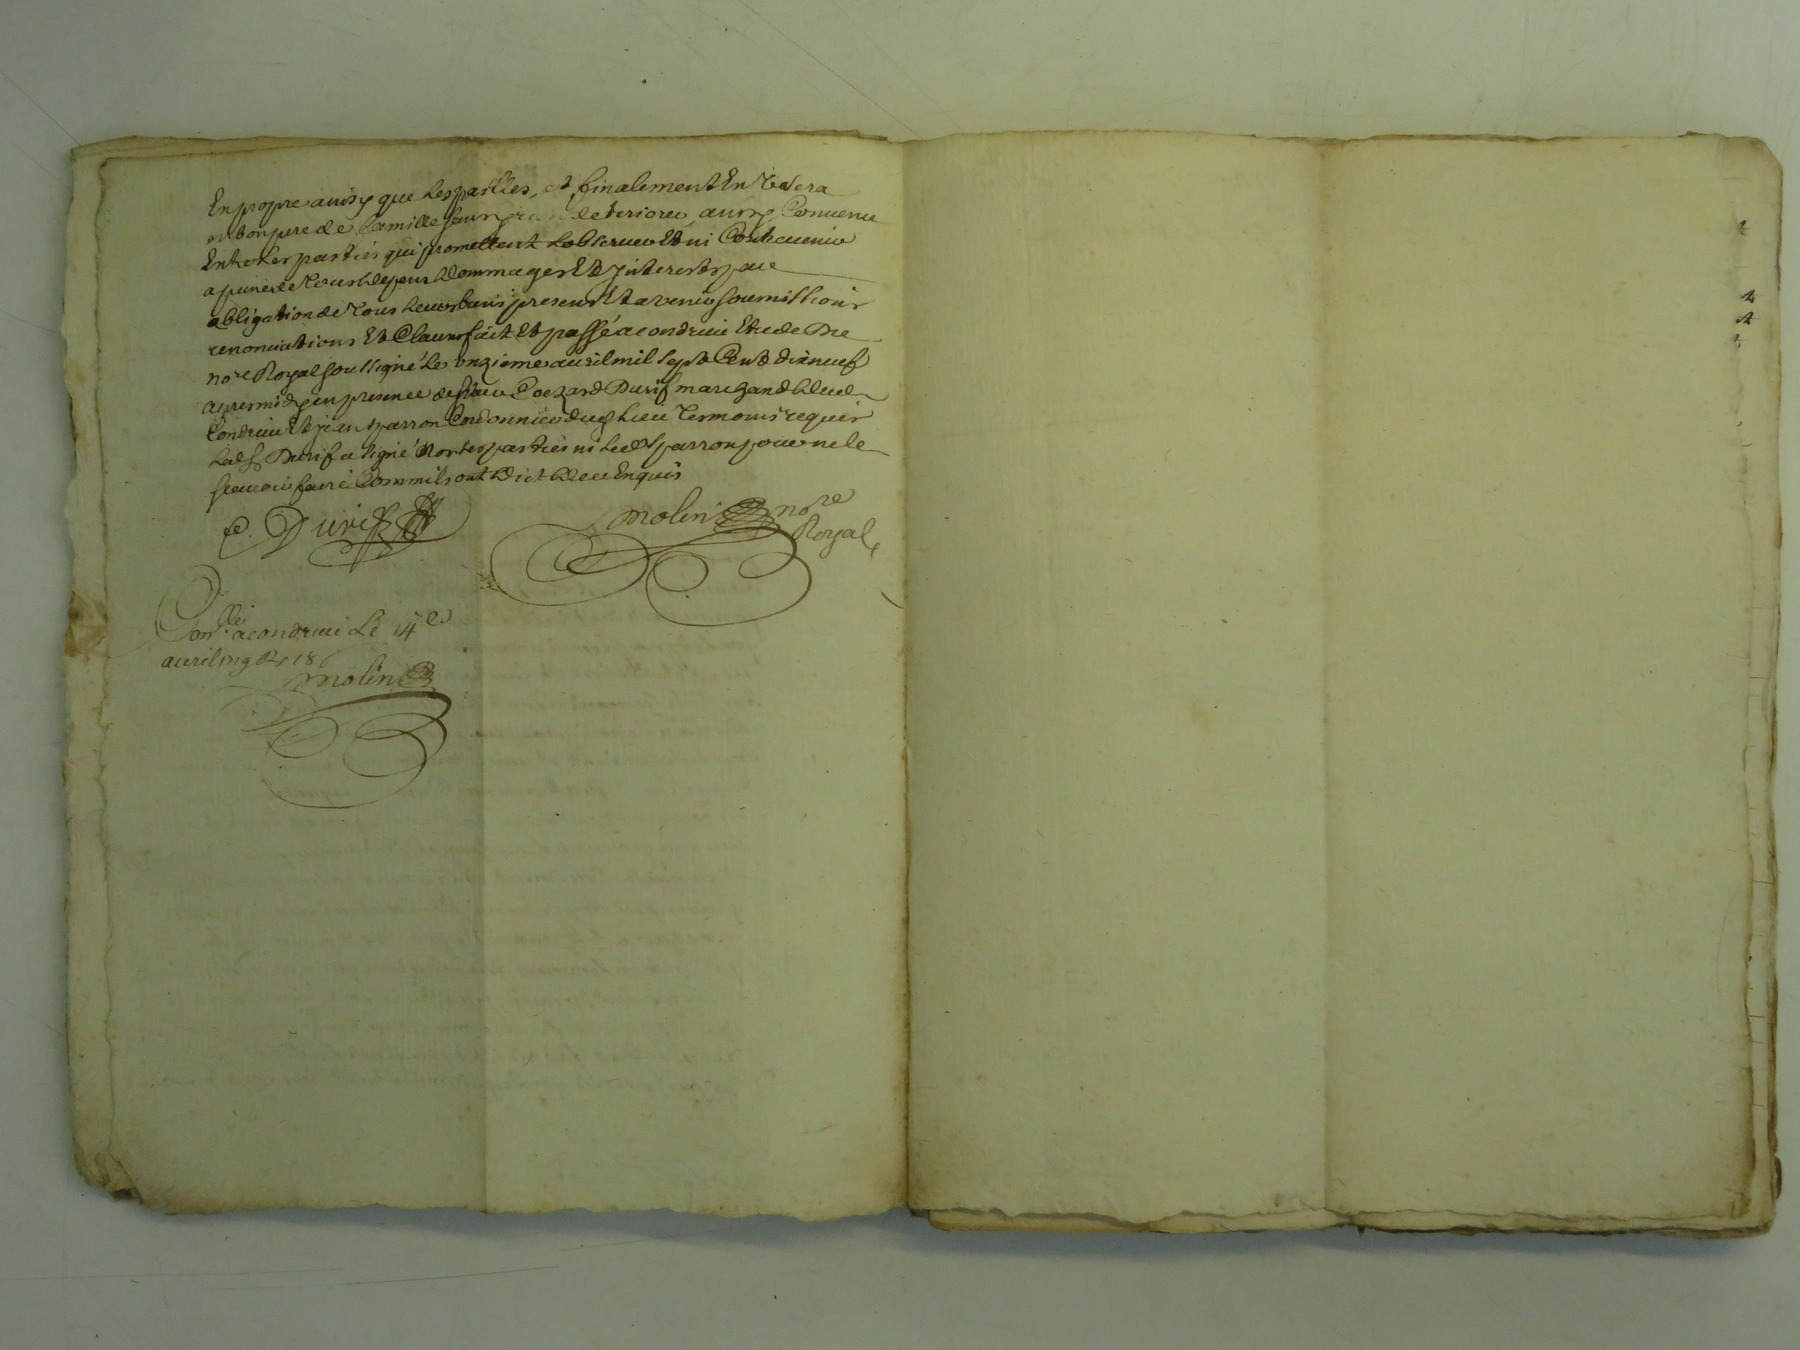 En propre ainsy que les pailles, et finalement En Usera
en bon pere de famille sans rien deteriorer ainsy Convenu
Entre les parties qui promettent Lobserver Et ni Contrevenir
a peine de tous depens dommages Et Interests par
obligation de tous leurs biens presens Et a venir soumissions
renonciations Et Clauses fait Et passé a condrieu Etude De
no.re Royal soussigné Le onzieme avril mil sept Cent dixneuf
apres midy en presence de sieur Marchand Durif marchand dud
Condrieu Et jean parron Cordonnier dud Lieu Temoins requis
Led S. Durif a signé Non les parties ni Led parron pour ne le
scavoir faire Comm ils ont Dict De ce Enquis
Durif
molin no.re
Royal
Con.lle a condrieu Le 14e
avril 1719 R 18s
molin